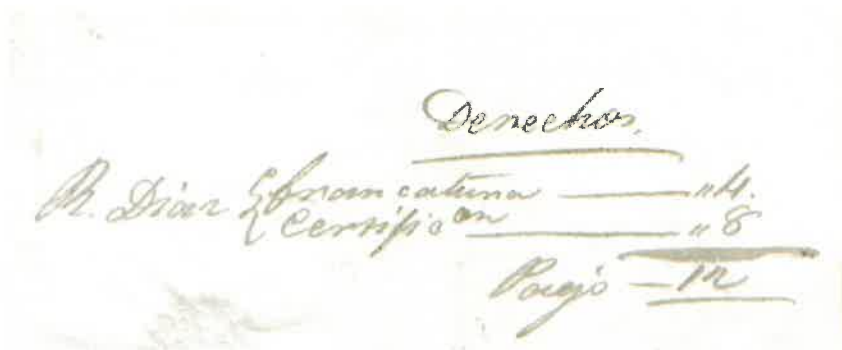 Derechos,
R. Diaz { francatura — „ 4.
{ Certific^on — „ 8
Pagó — 12